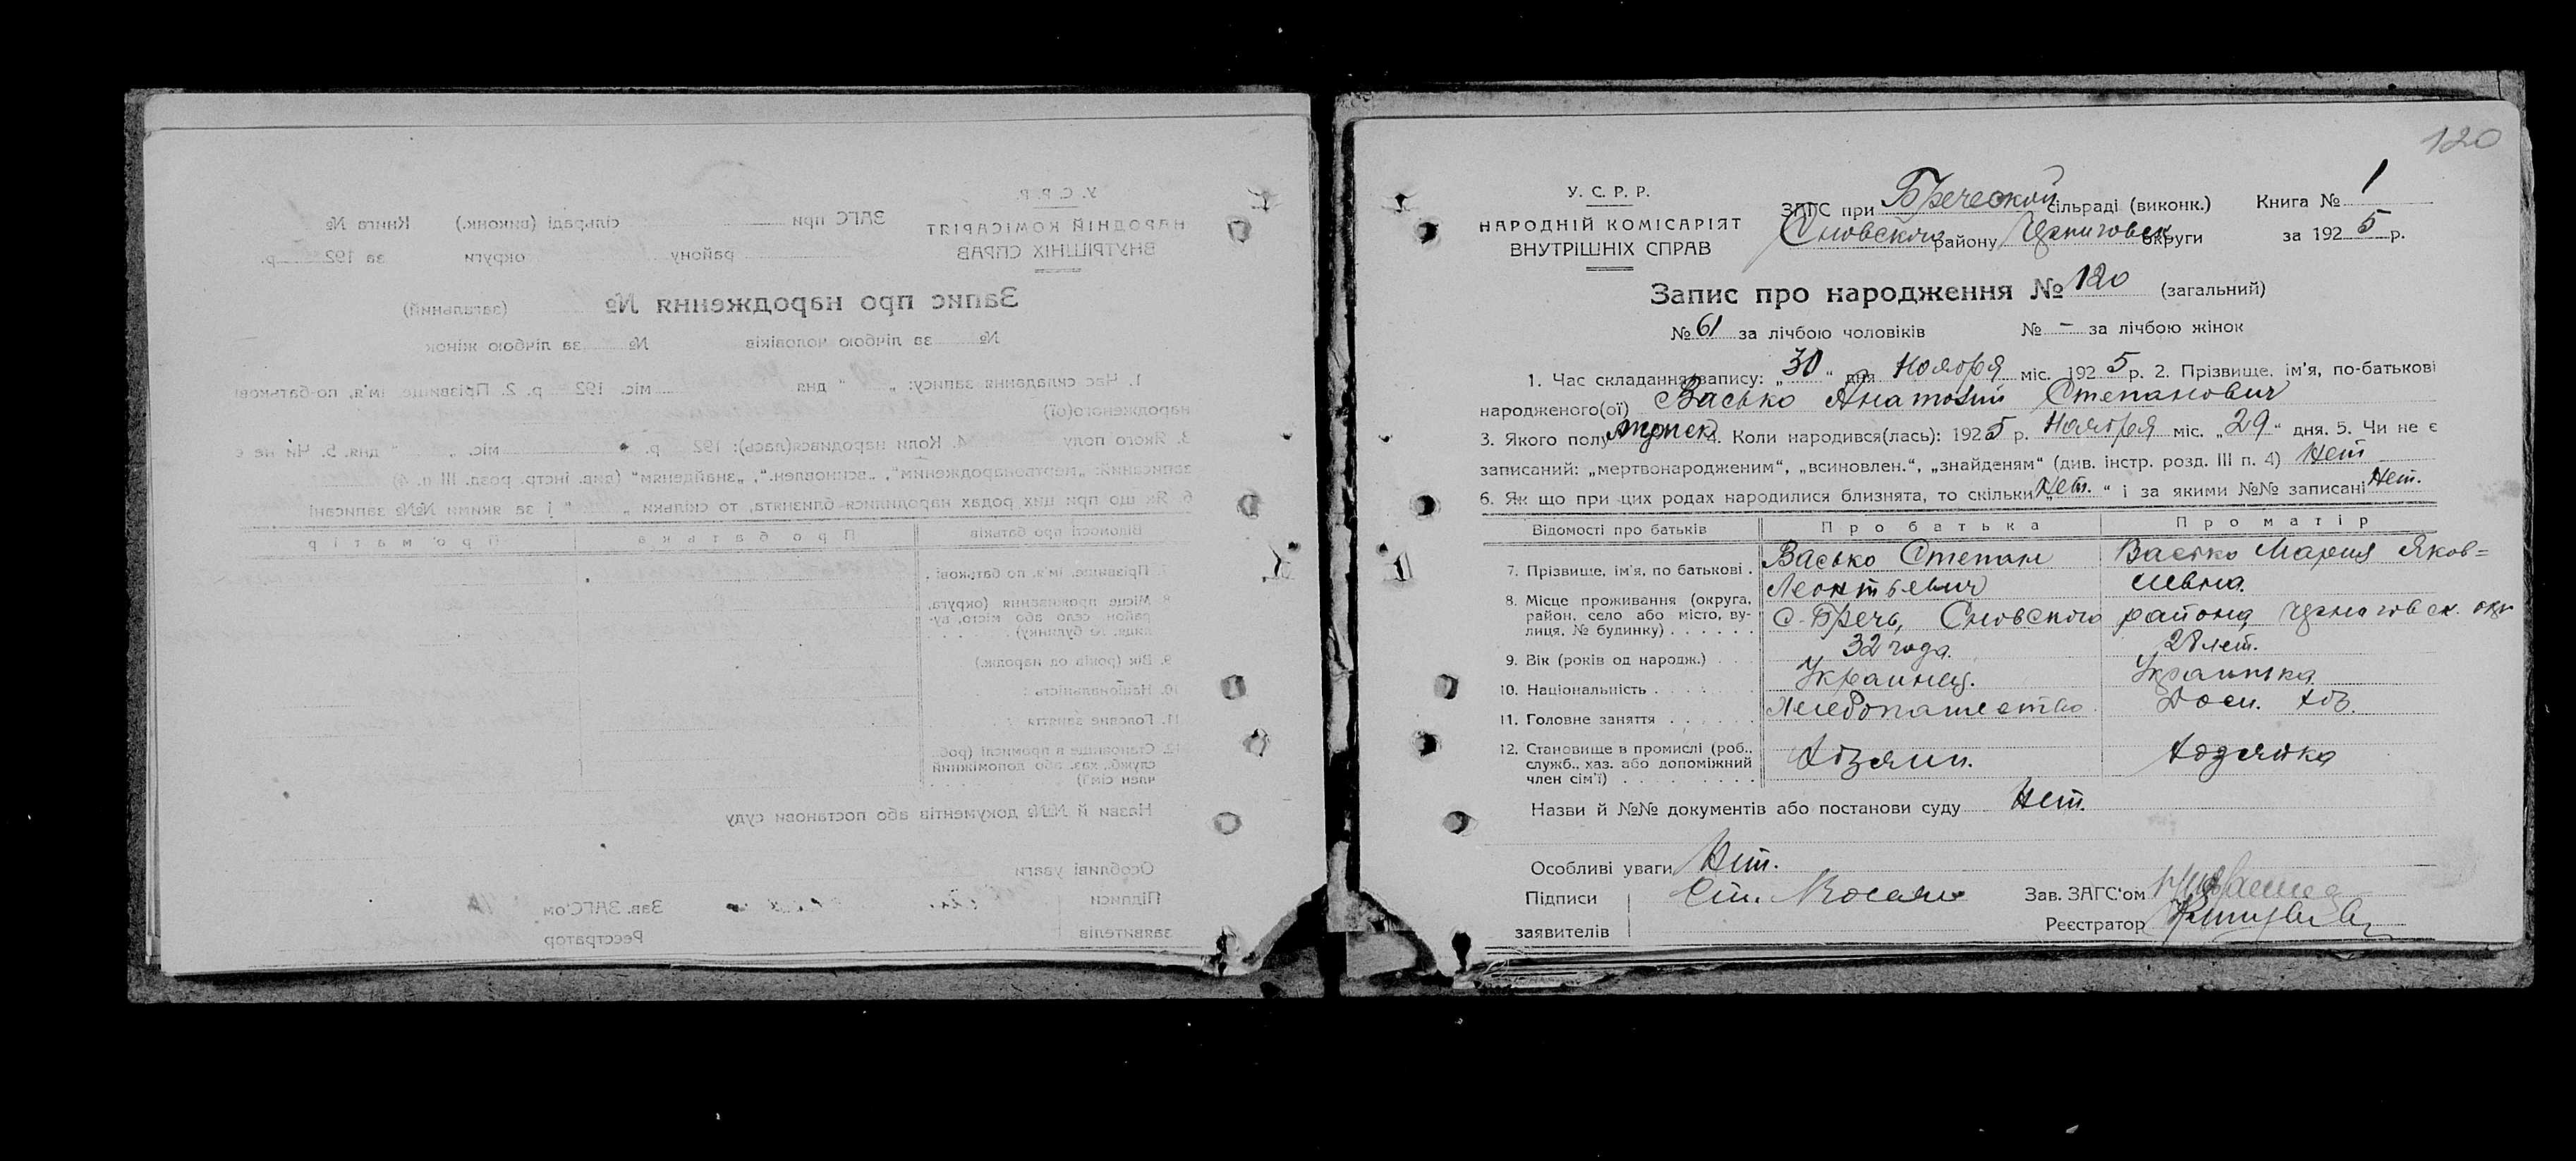 120
У. С. Р. Р.
НАРОДНІЙ КОМІСАРІЯТ
ВНУТРІШНІХ СПРАВ
ЗАГС при Бреческой сільраді (виконк.) Книга № 1
Сновского району Черниговск округи за 1925 р.
Запис про народження № 120 (загальний)
№ 61 за лічбою чоловіків № - за лічбою жінок
1. Час складання запису: „30“ дня Ноября міс. 1925 р. 2. Прізвище, ім'я, по-батькові
народженого(ої) Васько Анатолий Степанович
3. Якого полу мужск. 4. Коли народився(лась): 1925 р. Ноября міс. „29“ дня. 5. Чи не є
записаний: „мертвонародженим“, „всиновлен.“, „знайденям“ (див. інстр. розд. III п. 4) Нет
6. Як що при цих родах народилися близнята, то скільки „Нет.“ і за якими №№ записані Нет.
Відомості про батьків Про батька Про матір
7. Прізвище, ім'я, по батькові . Васько Степан Леонтьевич Васько Мария Яков=левна.
8. Місце проживання (округа, район, село або місто, вулиця, № будинку) . . . . . . С. Бречь, Сновского района Черниговск. окр
9. Вік (років од народж.) . . . 32 года. 28 лет.
10. Національність . . . . . . Украинец. Украинка
11. Головне заняття . . . . . . Хлебопашество Дом. хоз.
12. Становище в промислі (роб., служб., хаз. або допоміжний член сім'ї) . . . . . . . . . Хозяин. Хозяйка
Назви й №№ документів або постанови суду Нет.
Особливі уваги Нет.
Підписи заявителів Ст.
Зав. ЗАГС'ом
Реєстратор